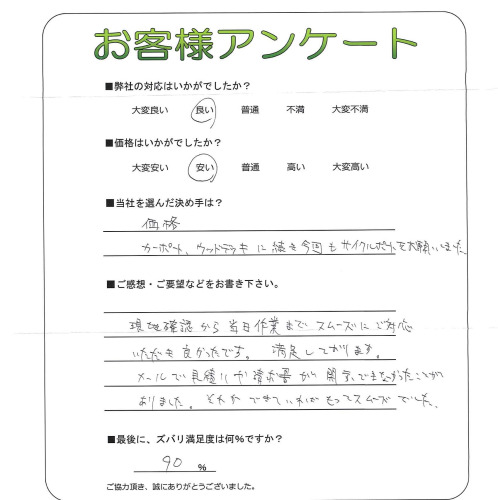 お客様アンケート
■弊社の対応はいかがでしたか？
大変良い 良い 普通 不満 大変不満
■価格はいかがでしたか？
大変安い 安い 普通 高い 大変高い
■当社を選んだ決め手は？
価格
カーポート、ウッドデッキに続き今回もサイクルポートをお願いしました
■ご感想・ご要望などをお書き下さい。
現地確認から当日作業までスムーズにご対応
いただき良かったです。 満足しております。
メールで見積りか請求書が開けできなかったことが
ありました。それができていればもってスムーズでした。
■最後に、ズバリ満足度は何％ですか？
90 ％
ご協力頂き、誠にありがとうございました。